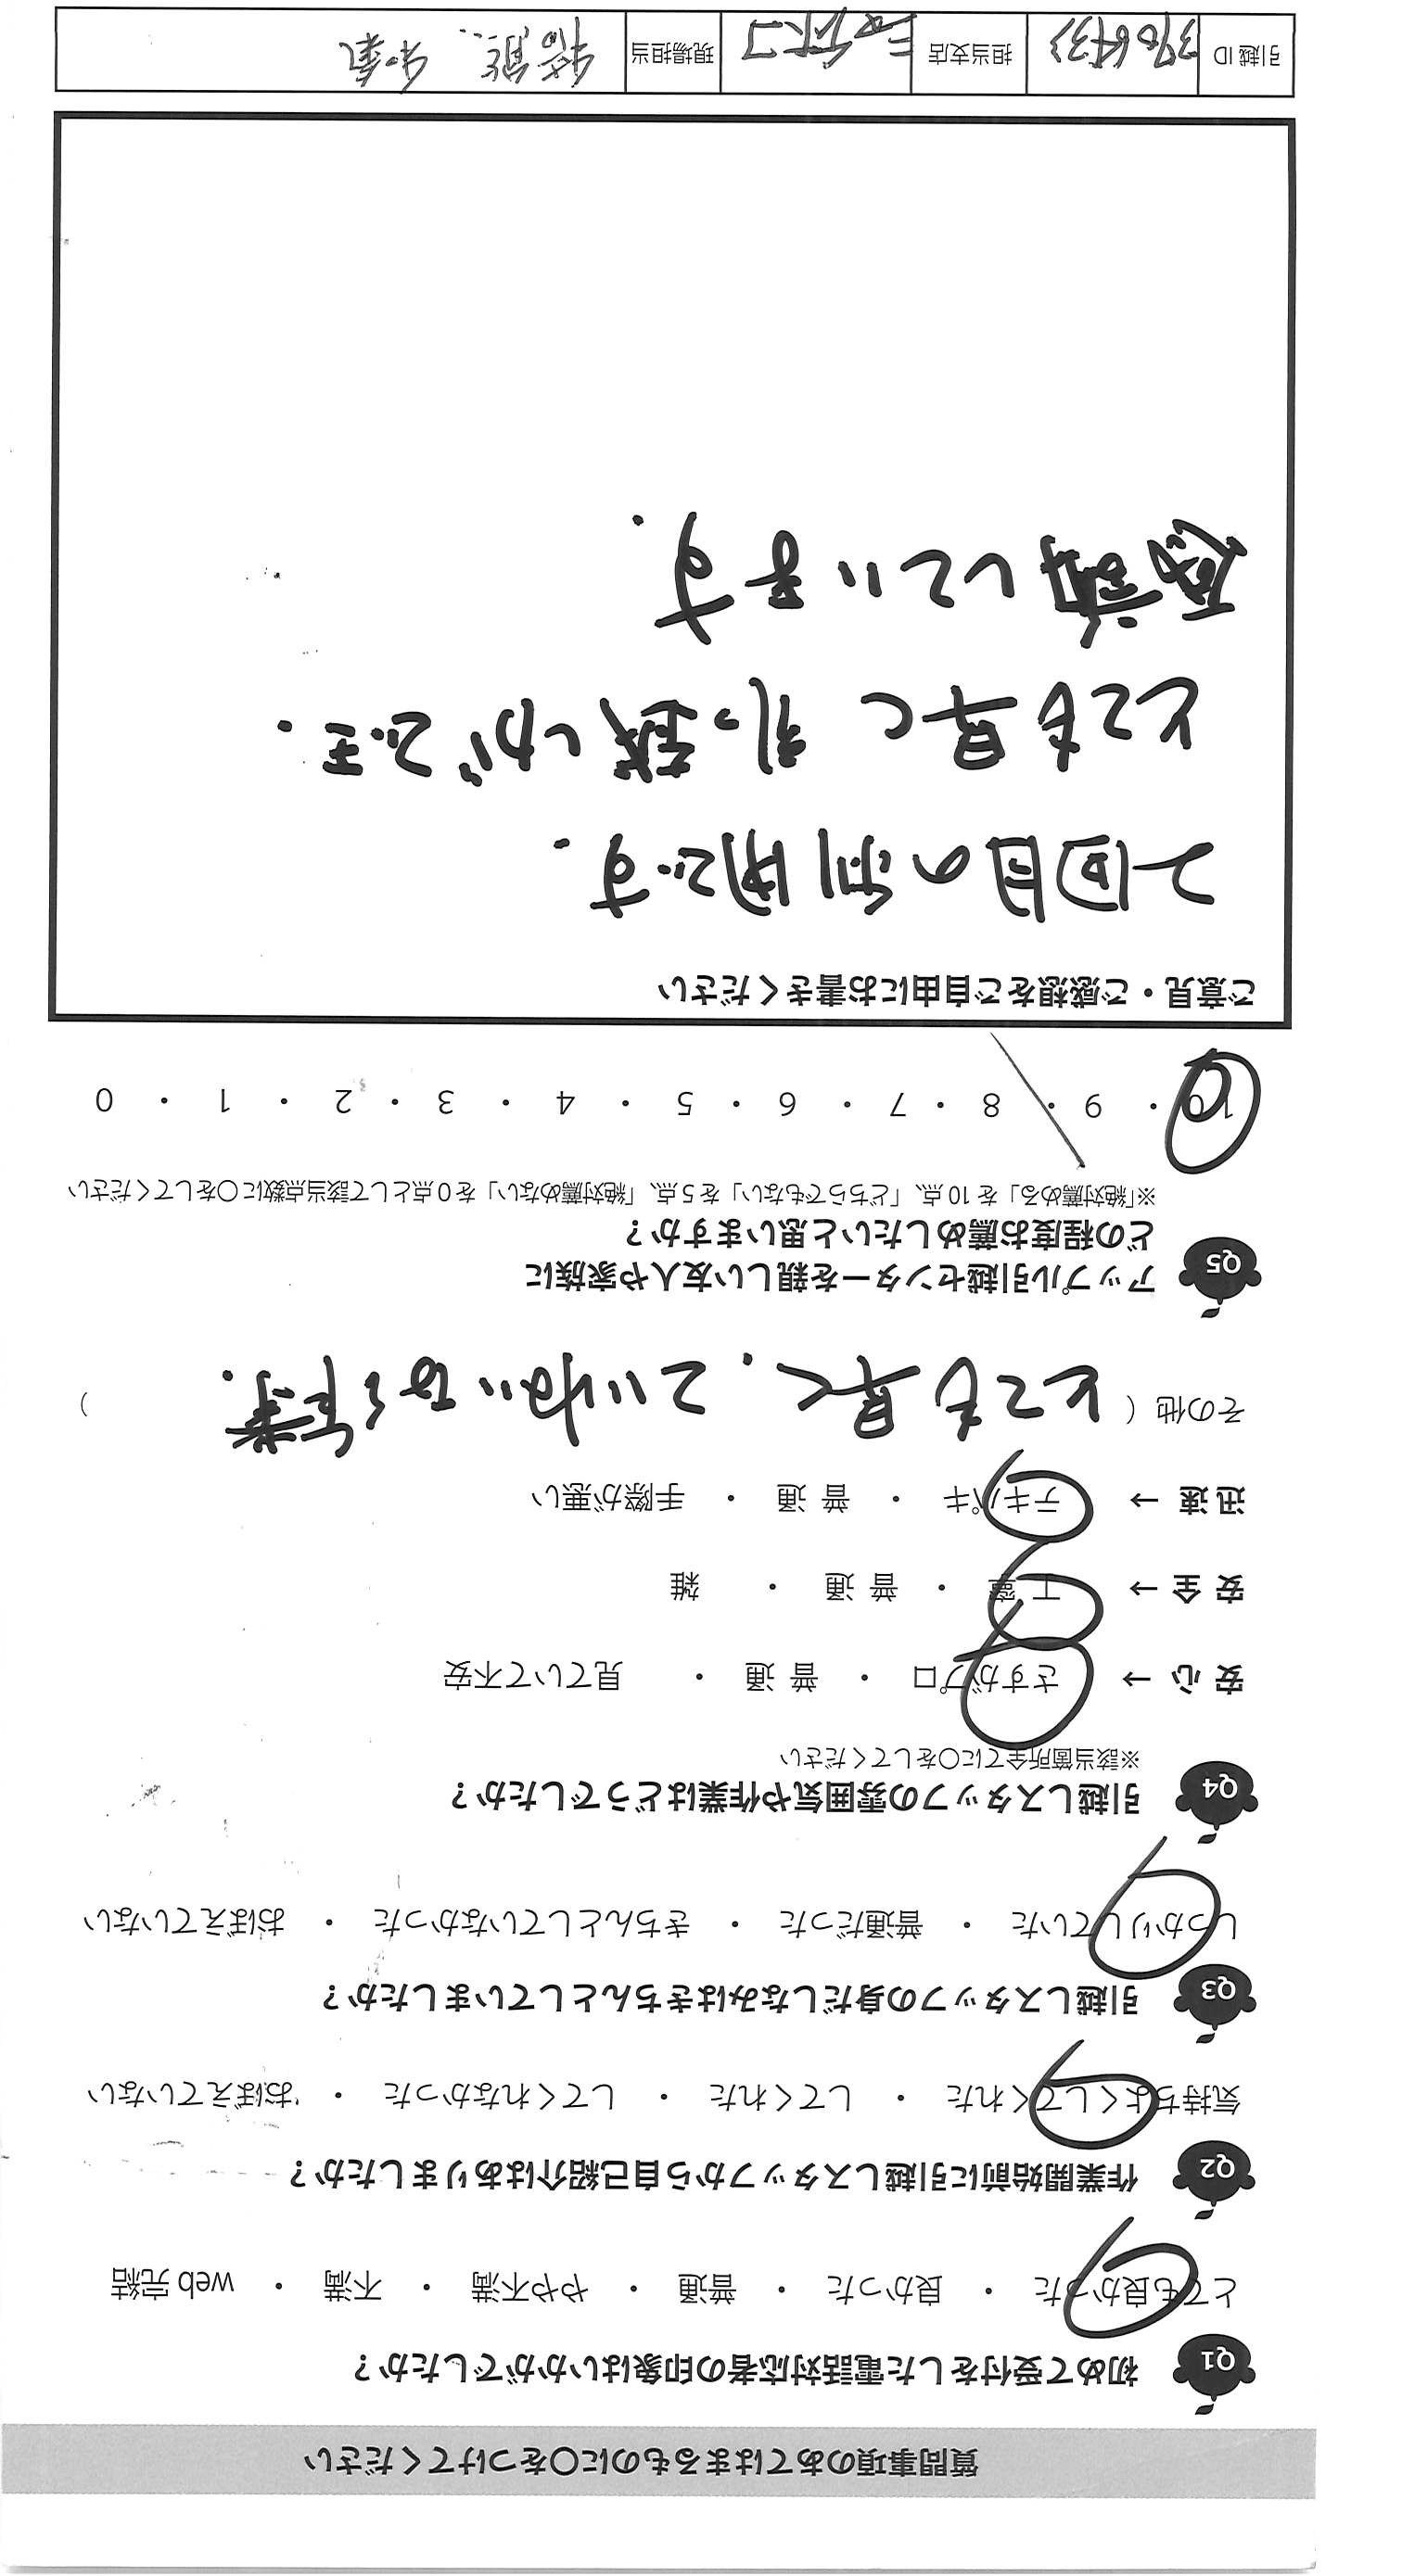 質問事項のあてはまるものに〇をつけてください
Q1 初めて受付をした電話対応者の印象はいかがでしたか？
とても良かった ・ 良かった ・ 普通 ・ やや不満 ・ 不満 ・ web 完結
Q2 作業開始前に引越しスタッフから自己紹介はありましたか？
気持ちよくしてくれた ・ してくれた ・ してくれなかった ・ おぼえていない
Q3 引越しスタッフの身だしなみはきちんとしていましたか？
しっかりしていた ・ 普通だった ・ きちんとしていなかった ・ おぼえていない
Q4 引越しスタッフの雰囲気や作業はどうでしたか？
※該当箇所全てに〇をしてください
安 心 → さすがプロ ・ 普 通 ・ 見ていて不安
安 全 → 丁 寧 ・ 普 通 ・ 雑
迅 速 → テキパキ ・ 普 通 ・ 手際が悪い
その他（ とても早く、ていねいな作業。 ）
Q5 アップル引越センターを親しい友人や家族に
どの程度お薦めしたいと思いますか？
※「絶対薦める」を 10 点、「どちらでもない」を 5 点、「絶対薦めない」を 0 点として該当点数に〇をしてください
10 ・ 9 ・ 8 ・ 7 ・ 6 ・ 5 ・ 4 ・ 3 ・ 2 ・ 1 ・ 0
ご意見・ご感想をご自由にお書きください
2回目の利用です。
とても早く引っ越しができ、
感謝しています。
引越 ID 担当支店 現場担当